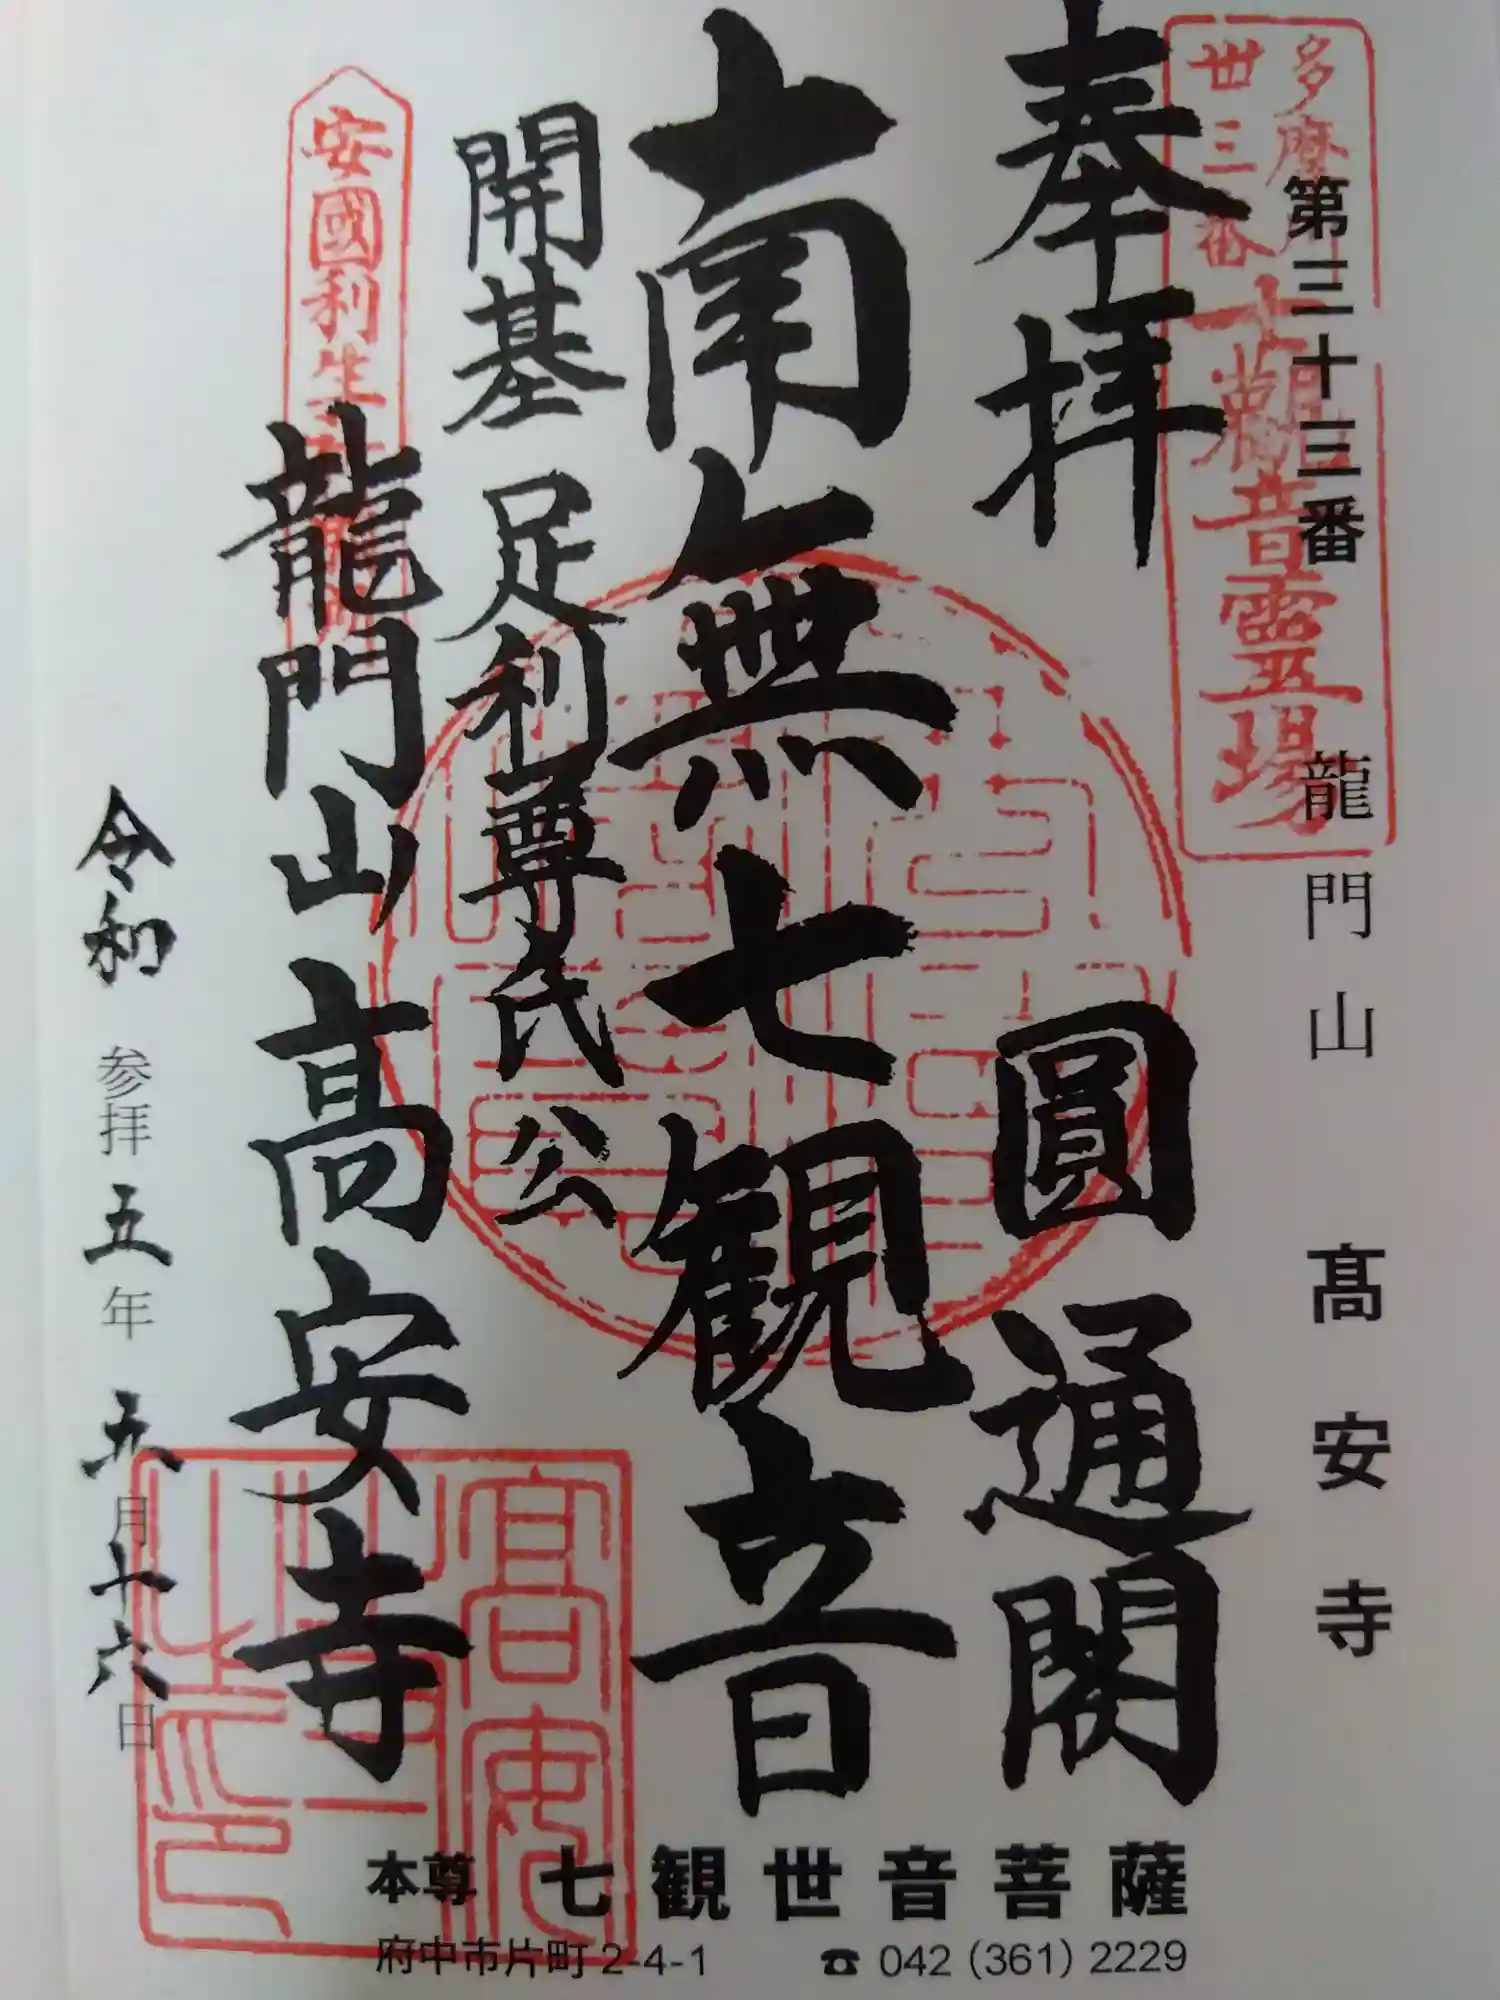 第三十三番 龍門山 髙安寺
多摩川
卅三番
観音霊場
奉拝 圓通閣
南無七観音
開基 足利尊氏公
安國利生
龍門山高安寺
令和 参拝 五年 五月十六日
髙安
寺
印
本尊 七観世音菩薩
府中市片町2-4-1 ☎ 042(361)2229